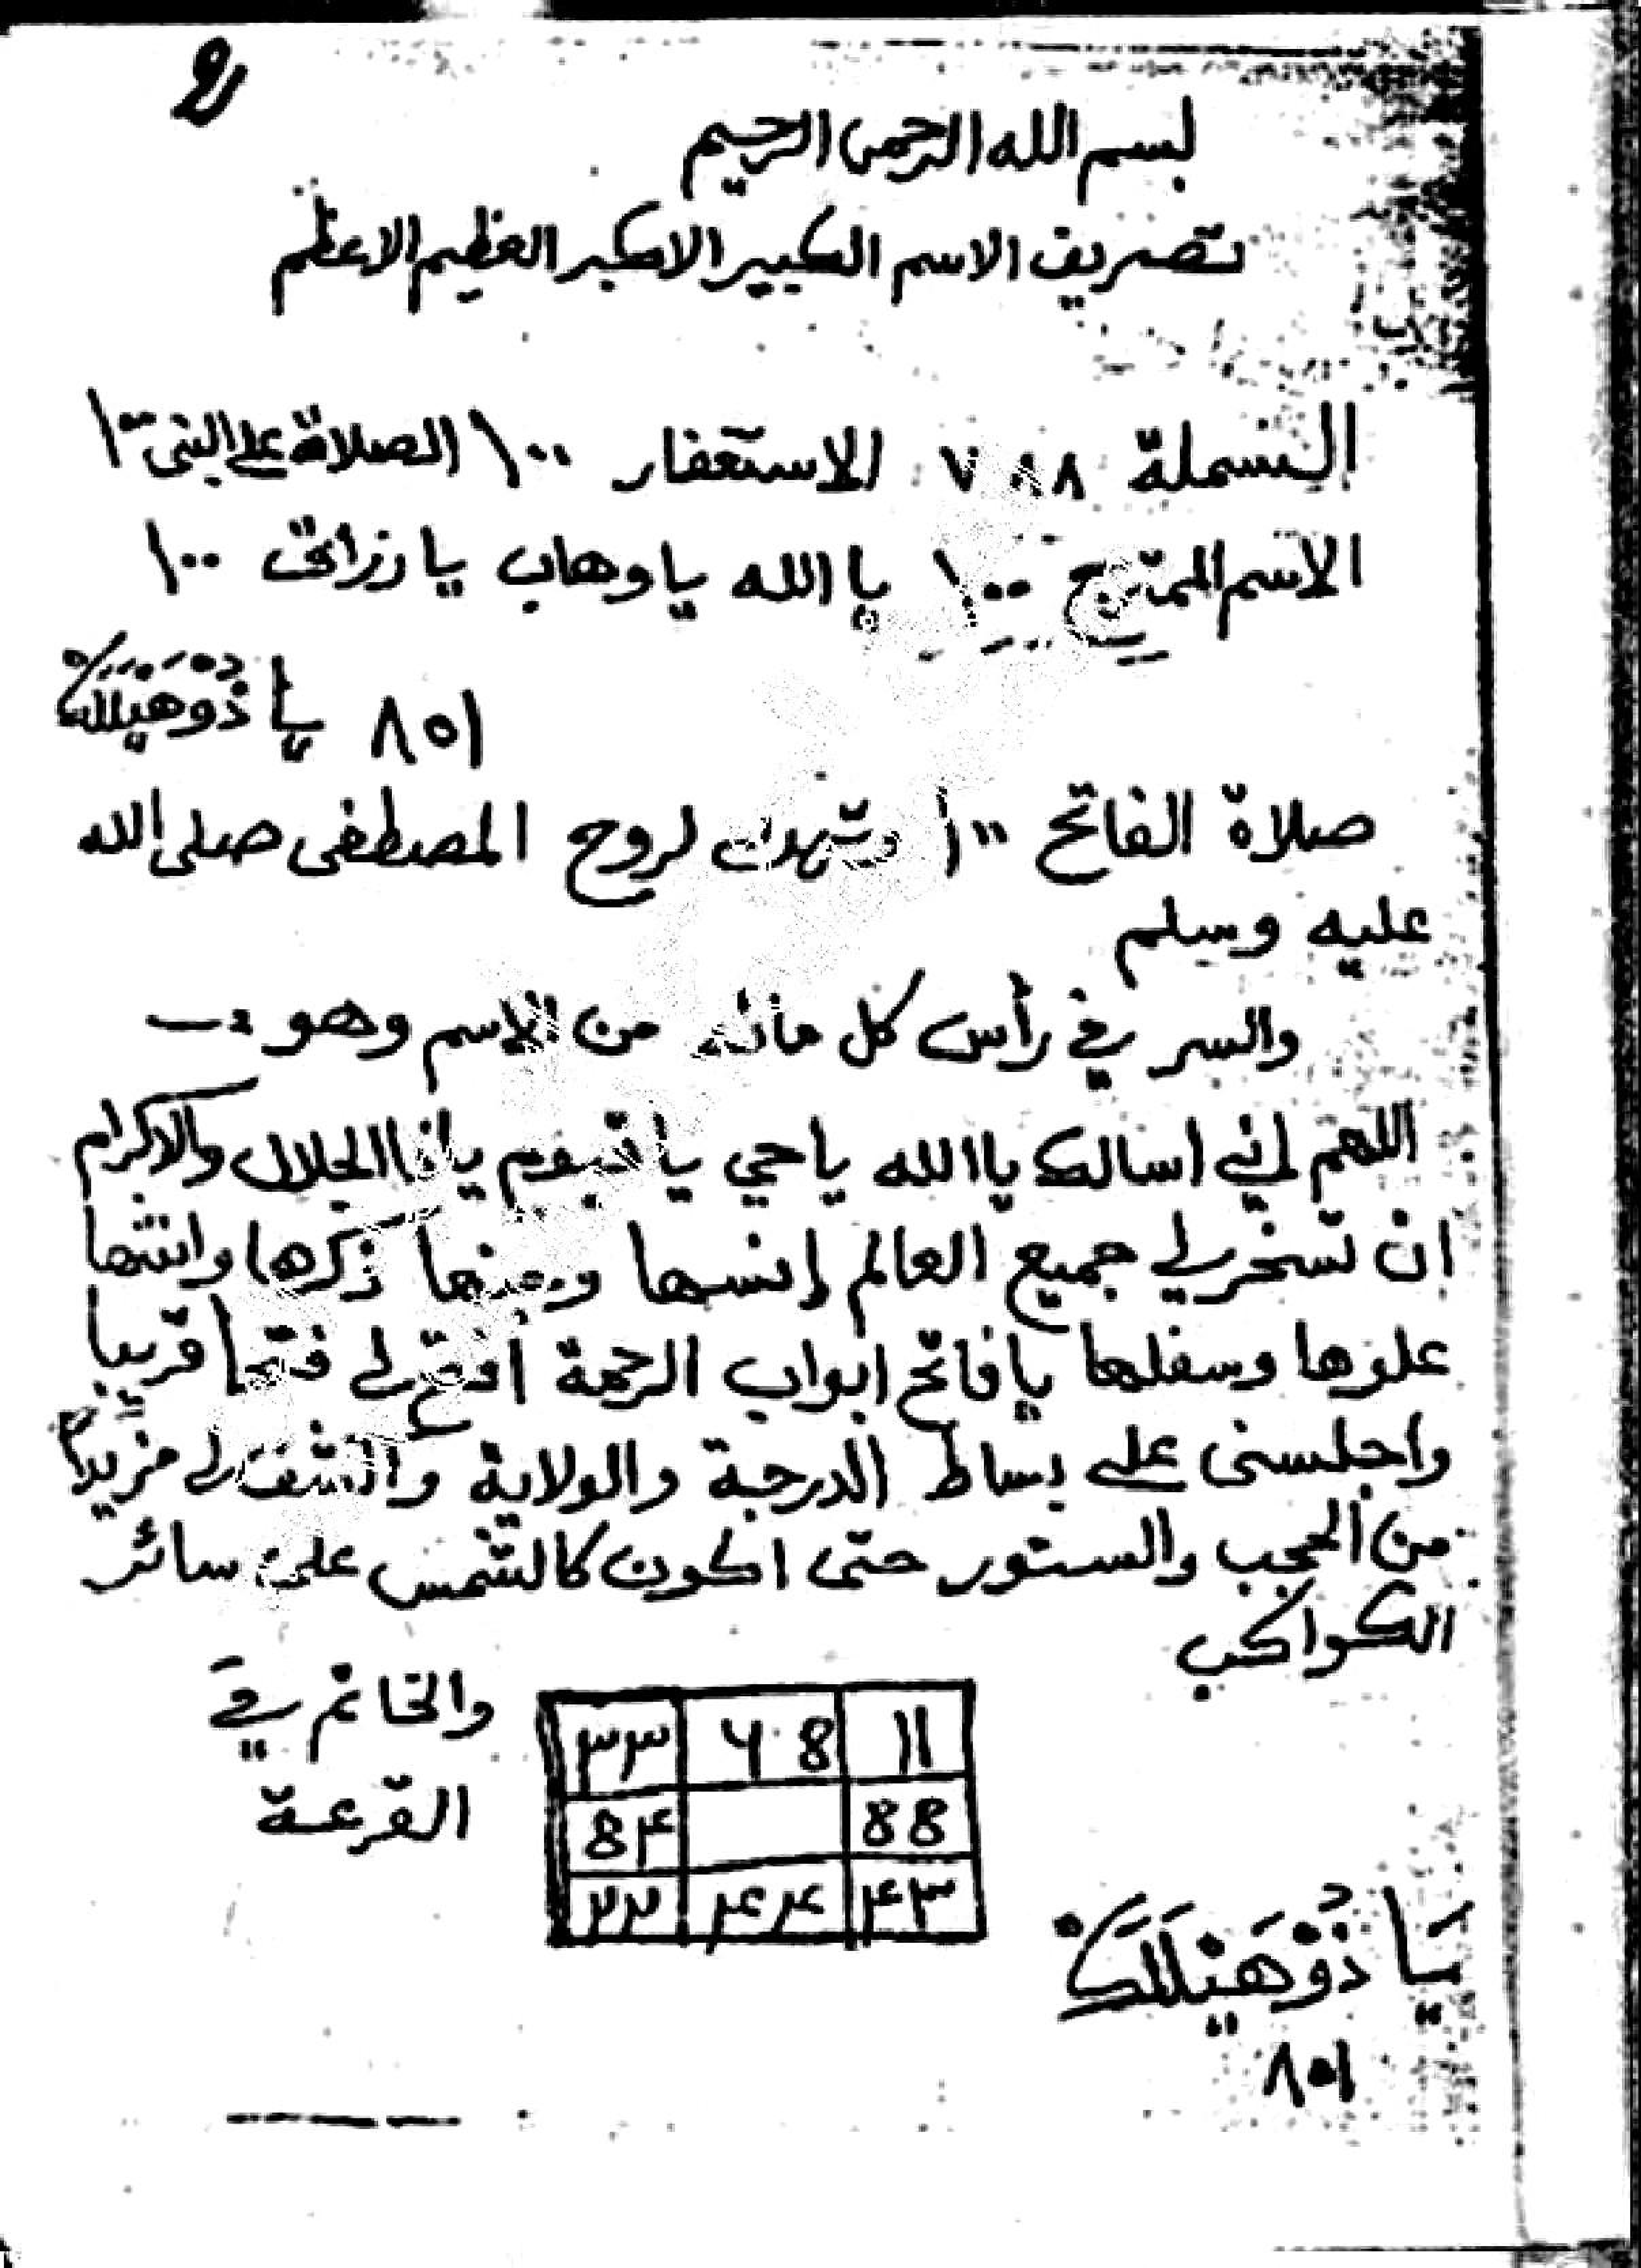 2
بسم الله الرحمن الرحيم
تصريف الاسم الكبير الاكبر العظيم الاعظم
البسملة ٧٨٨ الاستغفار ١٠٠ الصلاة على النبى ١٠٠
الاسم الممتزج ١٠٠ يا الله يا وهاب يا رزاق ١٠٠
٨٥١ يا ذُوْهَيْلَلَكْ
صلاة الفاتح ١٠٠ وتهدى لروح المصطفى صلى الله
عليه وسلم
والسر في رأس كل مائه من الاسم وهو :ـ
اللهم إني اسالك يا الله يا حي يا قيوم يا ذا الجلال والاكرام
ان تسخر لي جميع العالم إنسها وجنها ذكرها وانثها
علوها وسفلها يا فاتح ابواب الرحمة افتح لي فتحا قريبا
واجلسنى على بساط الدرجة والولاية واكشف لي مزيدا
من الحجب والستور حتى اكون كالشمس على سائر
الكواكب
والخاتم في
القرعة
١١ 8٦ ٣٣
88 8۴
۴٣ ۴۴ ٢٢
يَا ذُوْهَيْلَلَكْ
٨٥١